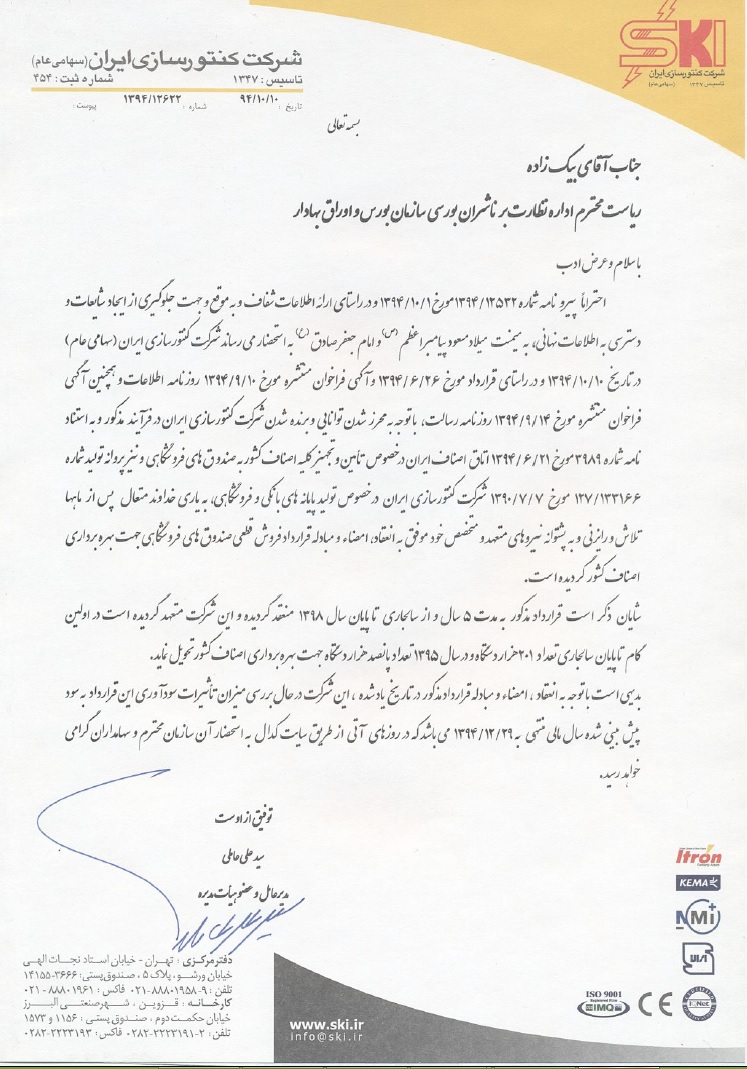 SKI
شرکت کنتورسازی ایران
(سهامی عام)
تاسیس: ۱۳۴۷
شرکت کنتورسازی ایران (سهامی عام)
تاسیس : ۱۳۴۷ شماره ثبت : ۴۵۴
تاریخ : ۹۴/۱۰/۱۰ شماره : ۱۳۹۴/۱۲۶۲۲ پیوست :
بسمه تعالی
جناب آقای بیک زاده
ریاست محترم اداره نظارت بر ناشران بورسی سازمان بورس و اوراق بهادار
با سلام و عرض ادب
احتراماً پیرو نامه شماره ۱۳۹۴/۱۲۵۳۲ مورخ ۱۳۹۴/۱۰/۱ و در راستای ارائه اطلاعات شفاف و به موقع و جهت جلوگیری از ایجاد شایعات و
دسترسی به اطلاعات نهانی، به میمنت میلاد مسعود پیامبر اعظم (ص) و امام جعفر صادق (ع) به استحضار می رساند شرکت کنتورسازی ایران (سهامی عام)
در تاریخ ۱۳۹۴/۱۰/۱۰ و در راستای قرارداد مورخ ۱۳۹۴/۶/۲۶ و آگهی فراخوان منتشره مورخ ۱۳۹۴/۹/۱۰ روزنامه اطلاعات و همچنین آگهی
فراخوان منتشره مورخ ۱۳۹۴/۹/۱۴ روزنامه رسالت، با توجه به محرز شدن توانایی و برنده شدن شرکت کنتورسازی ایران در فرآیند مذکور و به استناد
نامه شماره ۳۹۸۹ مورخ ۱۳۹۴/۶/۲۱ اتاق اصناف ایران در خصوص تامین و تجهیز کلیه اصناف کشور به صندوق های فروشگاهی و نیز پروانه تولید شماره
۱۳۷/۱۳۳۱۶۶ مورخ ۱۳۹۰/۷/۷ شرکت کنتورسازی ایران در خصوص تولید پایانه های بانکی و فروشگاهی، به یاری خداوند متعال پس از ماهها
تلاش و رایزنی و به پشتوانه نیروهای متعهد و متخصص خود موفق به انعقاد، امضاء و مبادله قرارداد فروش قطعی صندوق های فروشگاهی جهت بهره برداری
اصناف کشور گردیده است.
شایان ذکر است قرارداد مذکور به مدت ۵ سال و از سالجاری تا پایان سال ۱۳۹۸ منعقد گردیده و این شرکت متعهد گردیده است در اولین
گام تا پایان سالجاری تعداد ۲۰۱ هزار دستگاه و در سال ۱۳۹۵ تعداد پانصد هزار دستگاه جهت بهره برداری اصناف کشور تحویل نماید.
بدیهی است با توجه به انعقاد ، امضاء و مبادله قرارداد مذکور در تاریخ یاد شده ، این شرکت در حال بررسی میزان تأثیرات سودآوری این قرارداد به سود
پیش بینی شده سال مالی منتهی به ۱۳۹۴/۱۲/۲۹ می باشد که در روزهای آتی از طریق سایت کدال به استحضار آن سازمان محترم و سهامداران گرامی
خواهد رسید.
توفیق از اوست
سید علی عاملی
مدیر عامل و عضو هیأت مدیره
Itrón
KEMA
NMi
دفتر مرکزی : تهران - خیابان استاد نجات الهی
خیابان ورشو، پلاک ۵ ، صندوق پستی: ۳۶۶۶-۱۴۱۵۵
تلفن : ۹-۸۸۸۰۱۹۵۸-۰۲۱ فاکس : ۸۸۸۰۱۹۶۱ - ۰۲۱
کارخانه : قزوین ، شهر صنعتی البرز
خیابان حکمت دوم ، صندوق پستی : ۱۱۵۶ و ۱۵۷۳
تلفن : ۲-۲۲۲۳۱۹۱-۰۲۸۲ فاکس: ۲۲۲۳۱۹۳-۰۲۸۲
www.ski.ir
info@ski.ir
ISO 9001
IMQ
CE
IQNet